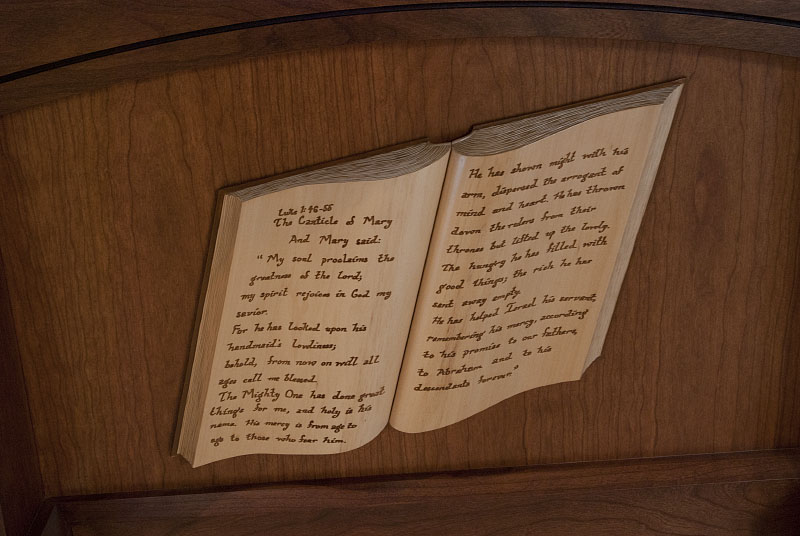 Luke 1:46-55
The Canticle of Mary
And Mary said:
"My soul proclaims the
greatness of the lord;
my spirit rejoices in God my
savior.
For he has looked upon his
handmaid's lowliness;
behold, from now on will all
ages call me blessed.
The Mighty One has done great
things for me, and holy is his
name. His mercy is from age to
age to those who fear him.
He has shown might with his
arm, dispersed the arrogant of
mind and heart. He has thrown
down the rulers from their
thrones but lifted up the lowly.
The hungry he has filled with
good things; the rich he has
sent away empty.
He has helped Israel his servant,
remembering his mercy, according
to his promise to our fathers,
to Abraham and to his
descendants forever."